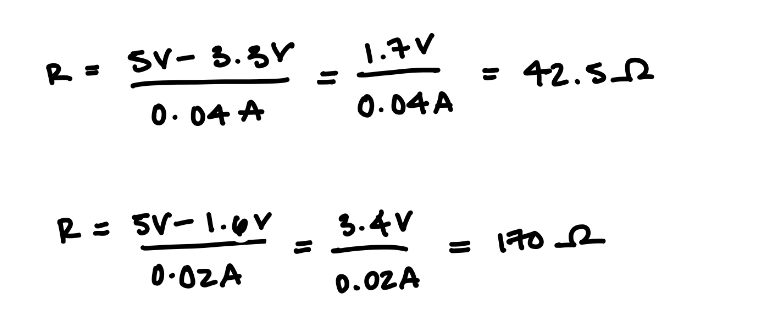 R = (5V - 3.3V)/(0.04A) = (1.7V)/(0.04A) = 42.5Ω
R = (5V - 1.6V)/(0.02A) = (3.4V)/(0.02A) = 170Ω